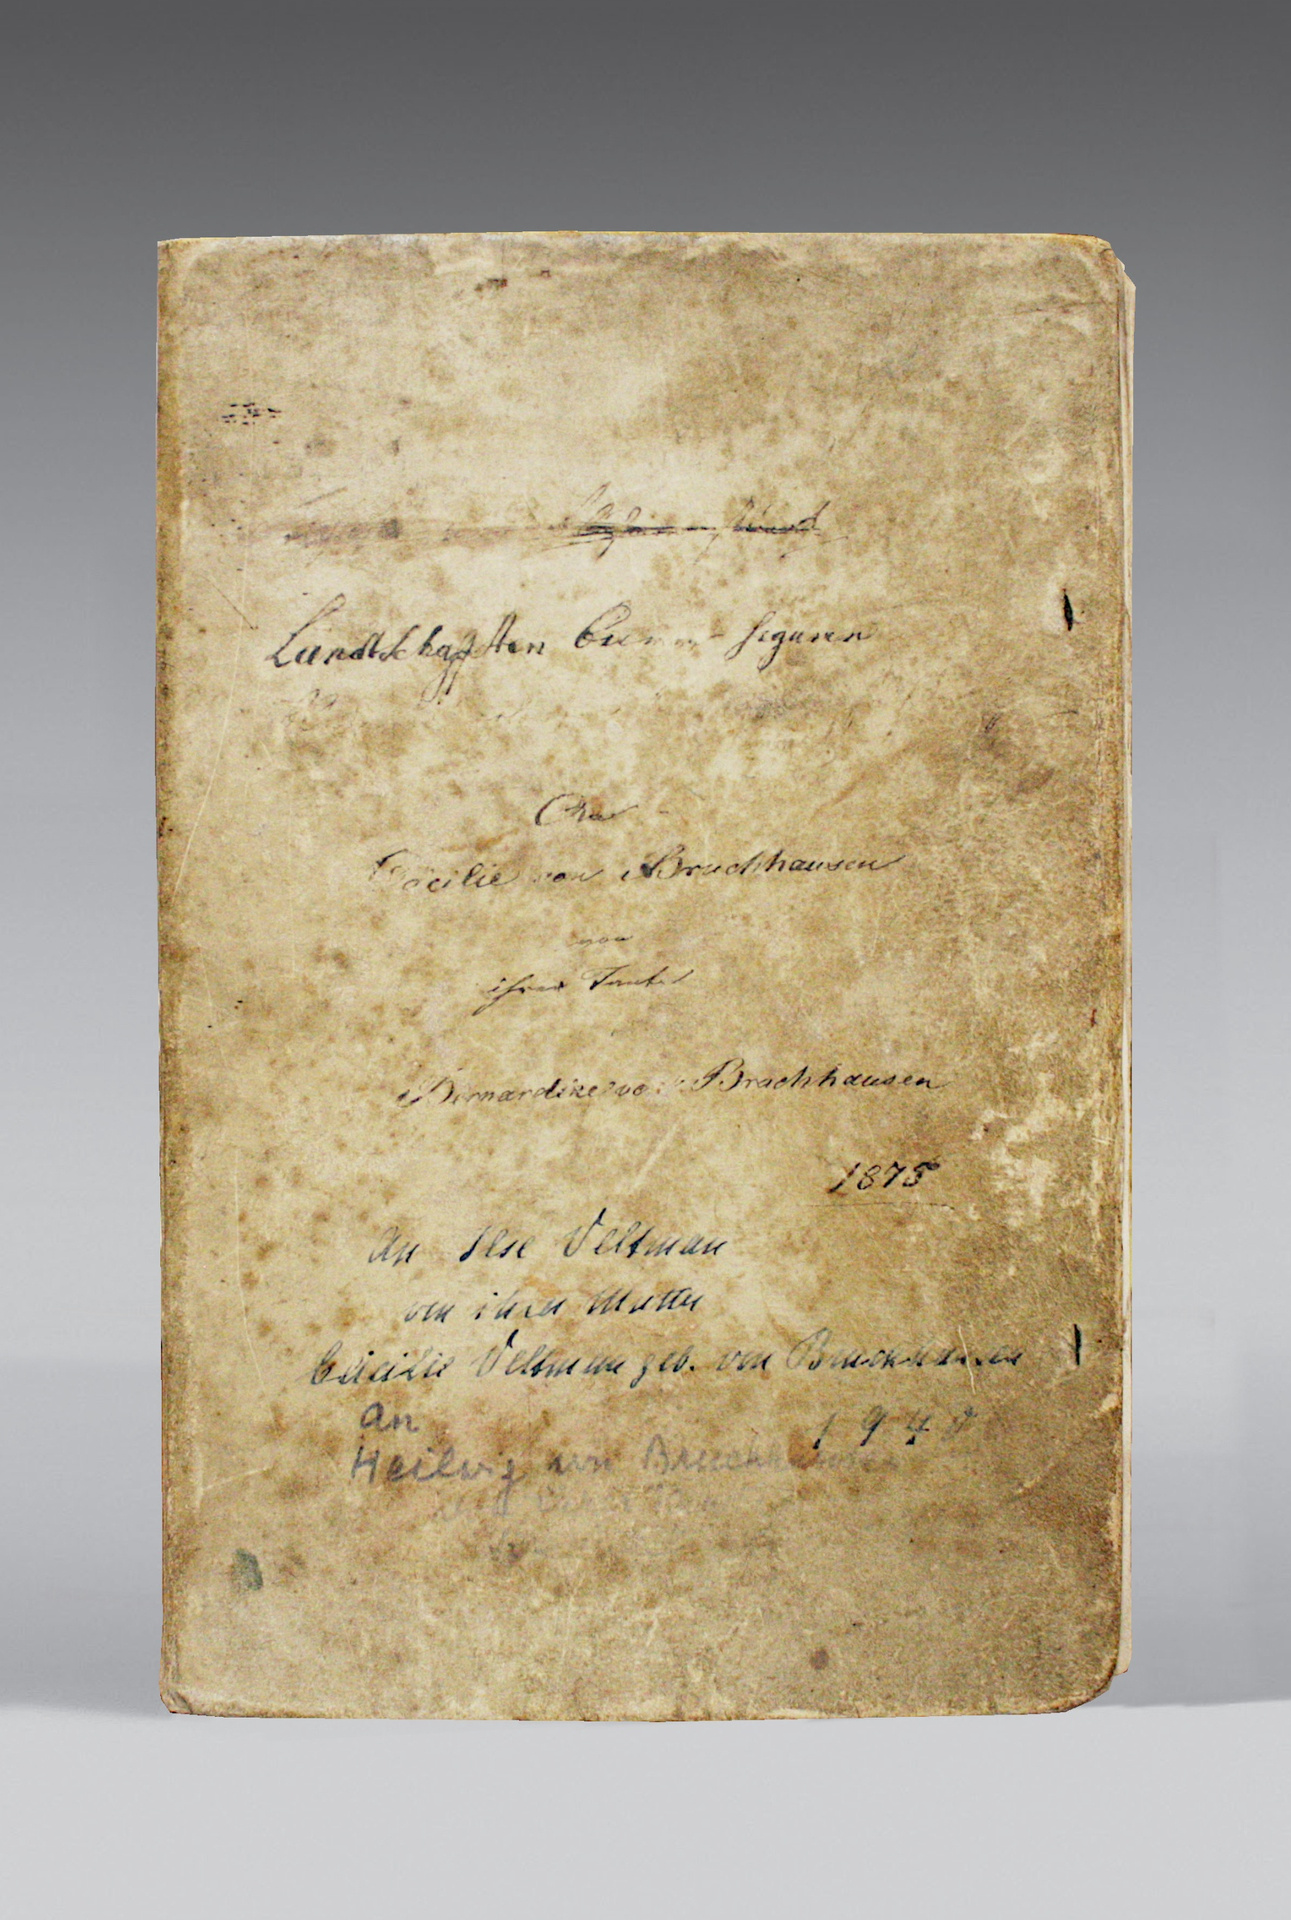 Landtschafften figuren
An
Cäcilie von Bruchhausen
von
ihrer Tante
Bernardine von Bruchhausen
1875
An Ilse Veltman
von ihrer Mutter
Cäcilie Veltman geb. von Bruchhausen
1940
An
Heilwig von Bruchhausen